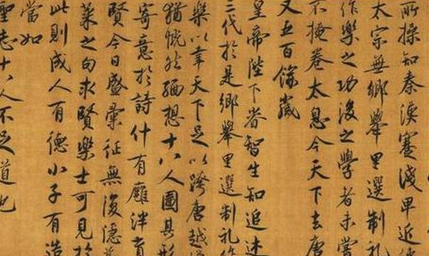 所操知秦漢蹇淺卑近
太宗無鄉舉里選制礼
作樂之功後之學者未嘗
不掩卷太息今天下去唐
又五百餘歲
皇帝陛下睿智生知追述
三代於是鄉舉里選制礼作
樂以幸天下足以跨唐越
猶恍然緬想十八人圖其形
寄意於詩什有廱泮育
賢今日盛彙征無復隱
菜之句求賢樂士可見於
此則成人有德小子有造
當如
聖志十八人不足道也